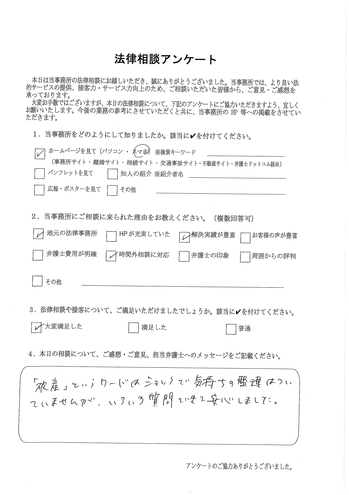 法律相談アンケート
本日は当事務所の法律相談にお越しいただき、誠にありがとうございました。当事務所では、より良い法
的サービスの提供、接客力・サービス力向上のため、ご相談いただいた皆様から、ご意見・ご感想を
承っております。
大変お手数ではございますが、本日の法律相談について、下記のアンケートにご協力いただきますよう、宜しく
お願いいたします。今後の業務の参考にさせていただくと共に、当事務所の HP 等への掲載をさせてい
ただきます。
1．当事務所をどのようにして知りましたか。該当に✔を付けてください。
ホームページを見て（パソコン・スマホ）※検索キーワード
（事務所サイト・離婚サイト・相続サイト・交通事故サイト・不動産サイト・弁護士ドットコム経由）
パンフレットを見て 知人の紹介 ※紹介者名
広報・ポスターを見て その他
2．当事務所にご相談に来られた理由をお教えください。（複数回答可）
地元の法律事務所 HPが充実していた 解決実績が豊富 お客様の声が豊富
弁護士費用が明確 時間外相談に対応 弁護士の印象 周囲からの評判
その他
3．法律相談や接客について、ご満足いただけましたでしょうか。該当に✔を付けてください。
大変満足した 満足した 普通
4．本日の相談について、ご感想・ご意見、担当弁護士へのメッセージをご記載ください。
「破産」というワードはショックで気持ちの整理はつい
ていませんが、いろいろ質問できて安心しました。
アンケートのご協力ありがとうございました。